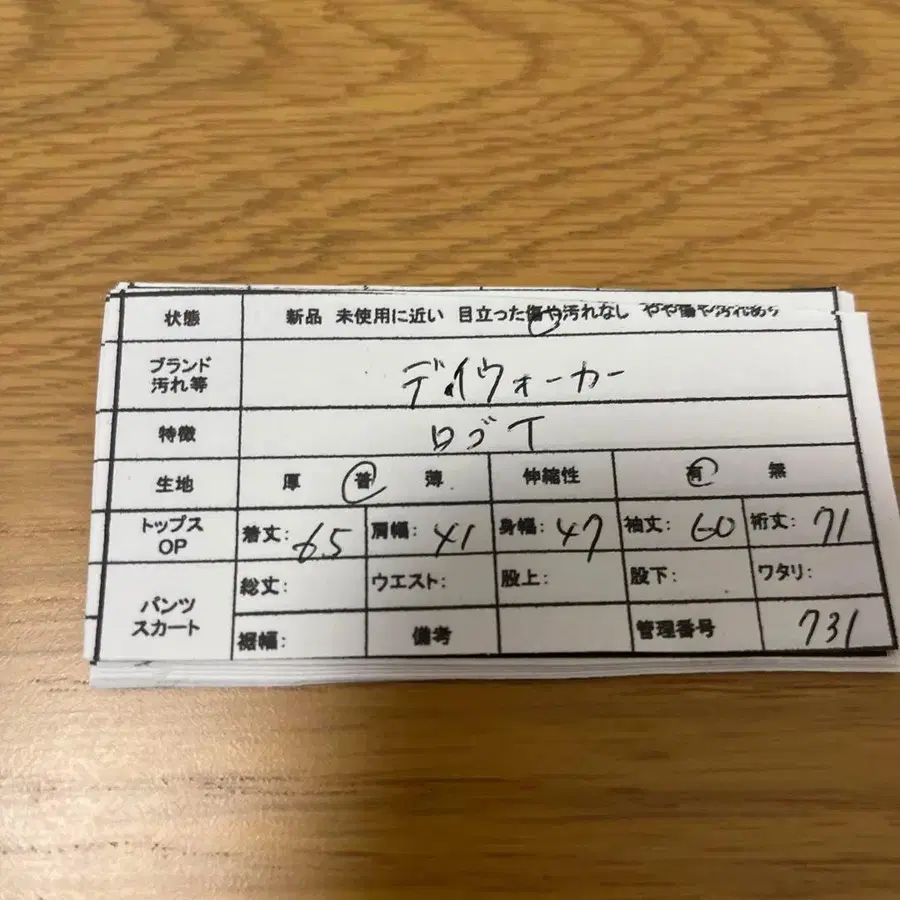 状態 新品 未使用に近い 目立った傷や汚れなし やや傷や汚れあり
ブランド
汚れ等 デイウォーカー
特徴 ロゴT
生地 厚 普 薄 伸縮性 有 無
トップス
OP 着丈: 65 肩幅: 41 身幅: 47 袖丈: 60 裄丈: 71
パンツ
スカート 総丈: ウエスト: 股上: 股下: ワタリ:
裾幅: 備考 管理番号 731